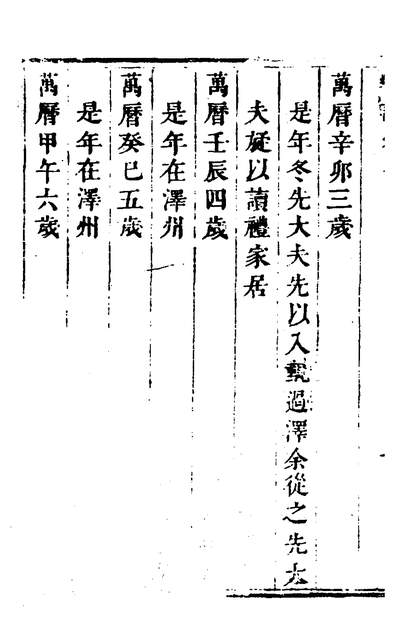 萬曆辛卯三歲
是年冬先大夫先以入覲過澤余從之先大
夫旋以讀禮家居
萬曆壬辰四歲
是年在澤州
萬曆癸巳五歲
是年在澤州
萬曆甲午六歲